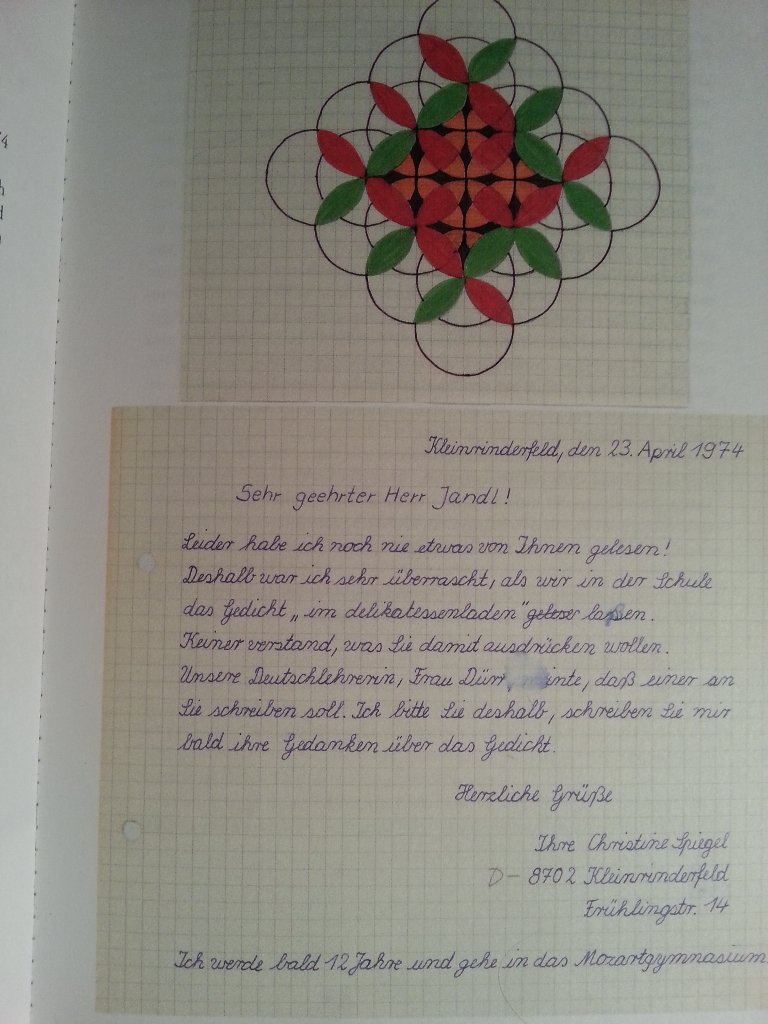 4
h
d
Kleinrinderfeld, den 23. April 1974
Sehr geehrter Herr Jandl!
Leider habe ich noch nie etwas von Ihnen gelesen!
Deshalb war ich sehr überrascht, als wir in der Schule
das Gedicht „im delikatessenladen" laßen.
Keiner verstand, was Sie damit ausdrücken wollen.
Unsere Deutschlehrerin, Frau Dürr, meinte, daß einer an
Sie schreiben soll. Ich bitte Sie deshalb, schreiben Sie mir
bald ihre Gedanken über das Gedicht.
Herzliche Grüße
Ihre Christine Spiegel
D- 8702 Kleinrinderfeld
Frühlingstr. 14
Ich werde bald 12 Jahre und gehe in das Mozartgymnasium